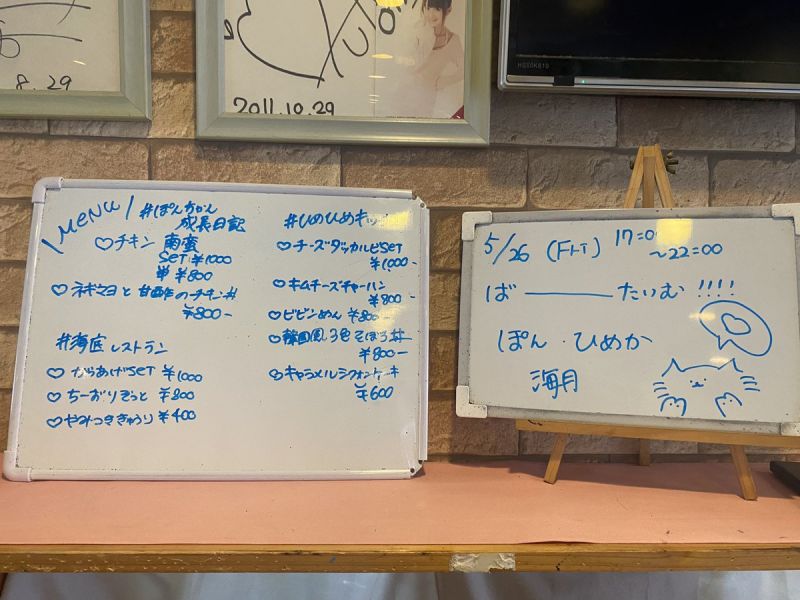 8.29
2011.10.29
HGS0K819
MENU
#ぽんちゃん
成長日記
♡チキン南蛮
SET:¥1000
単 ¥800
♡ネギマヨと甘酢のチキン丼
¥800-
#海底レストラン
♡からあげSET ¥1000
♡ちーおりぞっと ¥800
♡やみつききゅうり ¥400
#ひめひめキッ
♡チーズダッカルビSET
¥1000-
♡キムチーズチャーハン
¥800-
♡ビビンめん ¥800-
♡韓国風3色そぼろ丼
¥800-
♡キャラメルシフォンケーキ
¥600
5/26 (Fri) 17:0
~22:00
ば――たいむ!!!!
ぽん・ひめか
海月